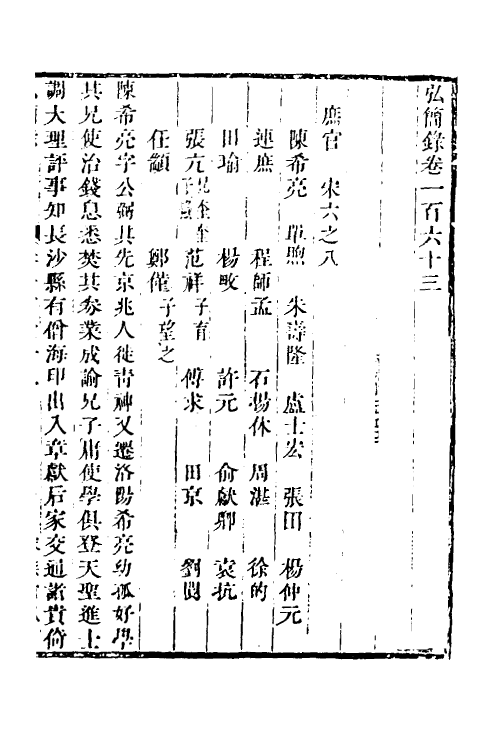 弘簡錄卷一百六十三
庶官 宋六之八
陳希亮 單煦 朱壽隆 盧士宏 張田 楊仲元
連庶 程師孟 石揚休 周湛 徐的
田瑜 楊畋 許元 俞獻卿 袁抗
張亢 兄奎 奎子燾 范祥 子育 傅求 田京 劉閱
任顓 鄭僅 子望之
陳希亮字公弼其先京兆人徙青神又遷洛陽希亮幼孤好學
其兄使治錢息悉焚其券業成諭兄子庸使學俱登天聖進士
調大理評事知長沙縣有僧海印出入章獻后家交通諸貴倚